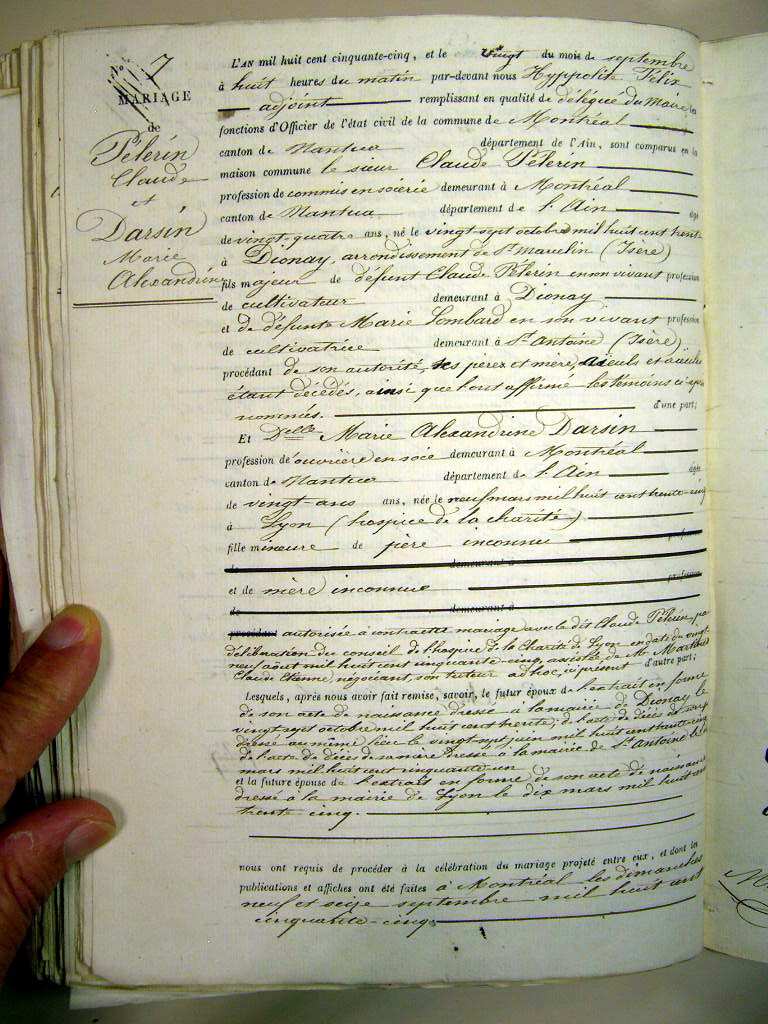 N° 7
MARIAGE
de
Pélerin
Claude
et
Darsin
Marie
Alexandrine
L'AN mil huit cent cinquante-cinq, et le vingt du mois de septembre
à huit heures du matin par-devant nous Hyppolite Félix
adjoint remplissant en qualité de délégué du Maire les
fonctions d'Officier de l'état civil de la commune de Montréal
canton de Nantua département de l'Ain, sont comparus en la
maison commune le sieur Claude Pélerin
profession de commis en soierie demeurant à Montréal
canton de Nantua département de l'Ain âgé
de vingt-quatre ans, né le vingt sept octobre mil huit cent trente
à Dionay, arrondissement de St Marcelin (Isère)
fils majeur de défunt Claude Pélerin en son vivant profession
de cultivateur demeurant à Dionay
et de défunte Marie Lombard en son vivant profession
de cultivatrice demeurant à St Antoine (Isère)
procédant de son autorité, ses père et mère, aïeuls et aïeules
étant décédés, ainsi que l'ont affirmé les témoins ci-après
nommés. d'une part;
Et Delle Marie Alexandrine Darsin
profession de ouvrière en soie demeurant à Montréal
canton de Nantua département de l'Ain âgée
de vingt-ans ans, née le neuf mars mil huit cent trente-cinq
à Lyon (hospice de la charité)
fille mineure de père inconnu profession
de demeurant à
et de mère inconnue profession
de demeurant à
procédant autorisée à contracter mariage avec le dit Claude Pélerin, par
délibération du conseil de l'hospice de la Charité de Lyon en date du vingt
neuf août mil huit cent cinquante-cinq, assistée de Mr
Claude Etienne négociant, son tuteur ad hoc, ici présent d'autre part;
Lesquels, après nous avoir fait remise, savoir, le futur époux de l'extrait en forme
de son acte de naissance dressé à la mairie de Dionay le
vingt sept octobre mil huit cent trente; de l'acte de décès de son père
dressé au même lieu le vingt sept juin mil huit cent trente-cinq
de l'acte de décès de sa mère dressé à la mairie de St Antoine le
mars mil huit cent cinquante-un
et la future épouse de l'extrait en forme de son acte de naissance
dressé à la mairie de Lyon le dix mars mil huit cent
trente-cinq.
nous ont requis de procéder à la célébration du mariage projeté entre eux, et dont les
publications et affiches ont été faites à Montréal les dimanches
neuf et seize septembre mil huit cent
cinquante-cinq.